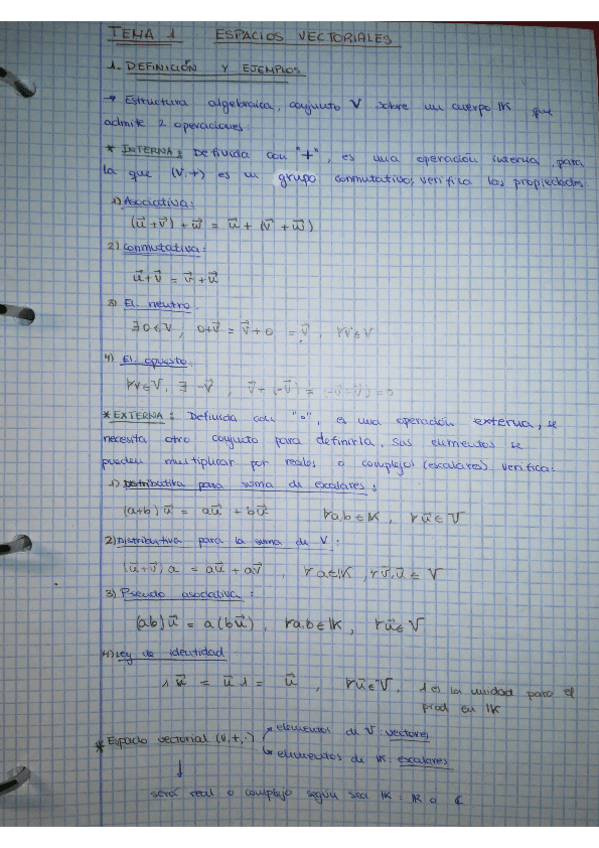 TEMA 1 ESPACIOS VECTORIALES
1. DEFINICIÓN Y EJEMPLOS
→ Estructura algebraica, conjunto V sobre un cuerpo IK que
admite 2 operaciones:
* INTERNA: Definida con "+", es una operación interna para
la que (V,+) es un grupo conmutativo, verifica las propiedades
1) Asociativa:
(u⃗+v⃗)+w⃗ = u⃗+(v⃗+w⃗)
2) Conmutativa:
u⃗+v⃗ = v⃗+u⃗
3) El. neutro.
∃0∈V, 0+v⃗ = v⃗+0 = v⃗, ∀v∈V
4) El. opuesto.
∀v∈V, ∃ -v⃗, v⃗+(-v⃗) = =0
* EXTERNA: Definida con "∘", es una operación externa, se
necesita otro conjunto para definirla. Sus elementos se
pueden multiplicar por reales o complejos (escalares). Verifica:
1) Distributiva para suma de escalares:
(a+b)u⃗ = au⃗ + bu⃗ ∀a,b∈IK, ∀u⃗∈V
2) Distributiva para la suma de V:
(u⃗+v⃗)a = au⃗+av⃗, ∀a∈IK, ∀v⃗,u⃗∈V
3) Pseudo asociativa:
(ab)u⃗ = a(bu⃗), ∀a,b∈IK, ∀u⃗∈V
4) Ley de identidad
1u⃗ = u⃗1 = u⃗, ∀u⃗∈V, 1 es la unidad para el
prod en IK
* Espacio vectorial (V,+,·) → elementos de V: vectores
→ elementos de IK: escalares
↓
será real o complejo según sea IK: IR o ℂ